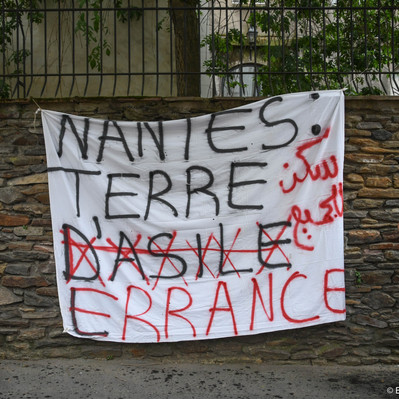 NANTES:
TERRE
D'ASILE
ERRANCE
سكن
للجميع
© E